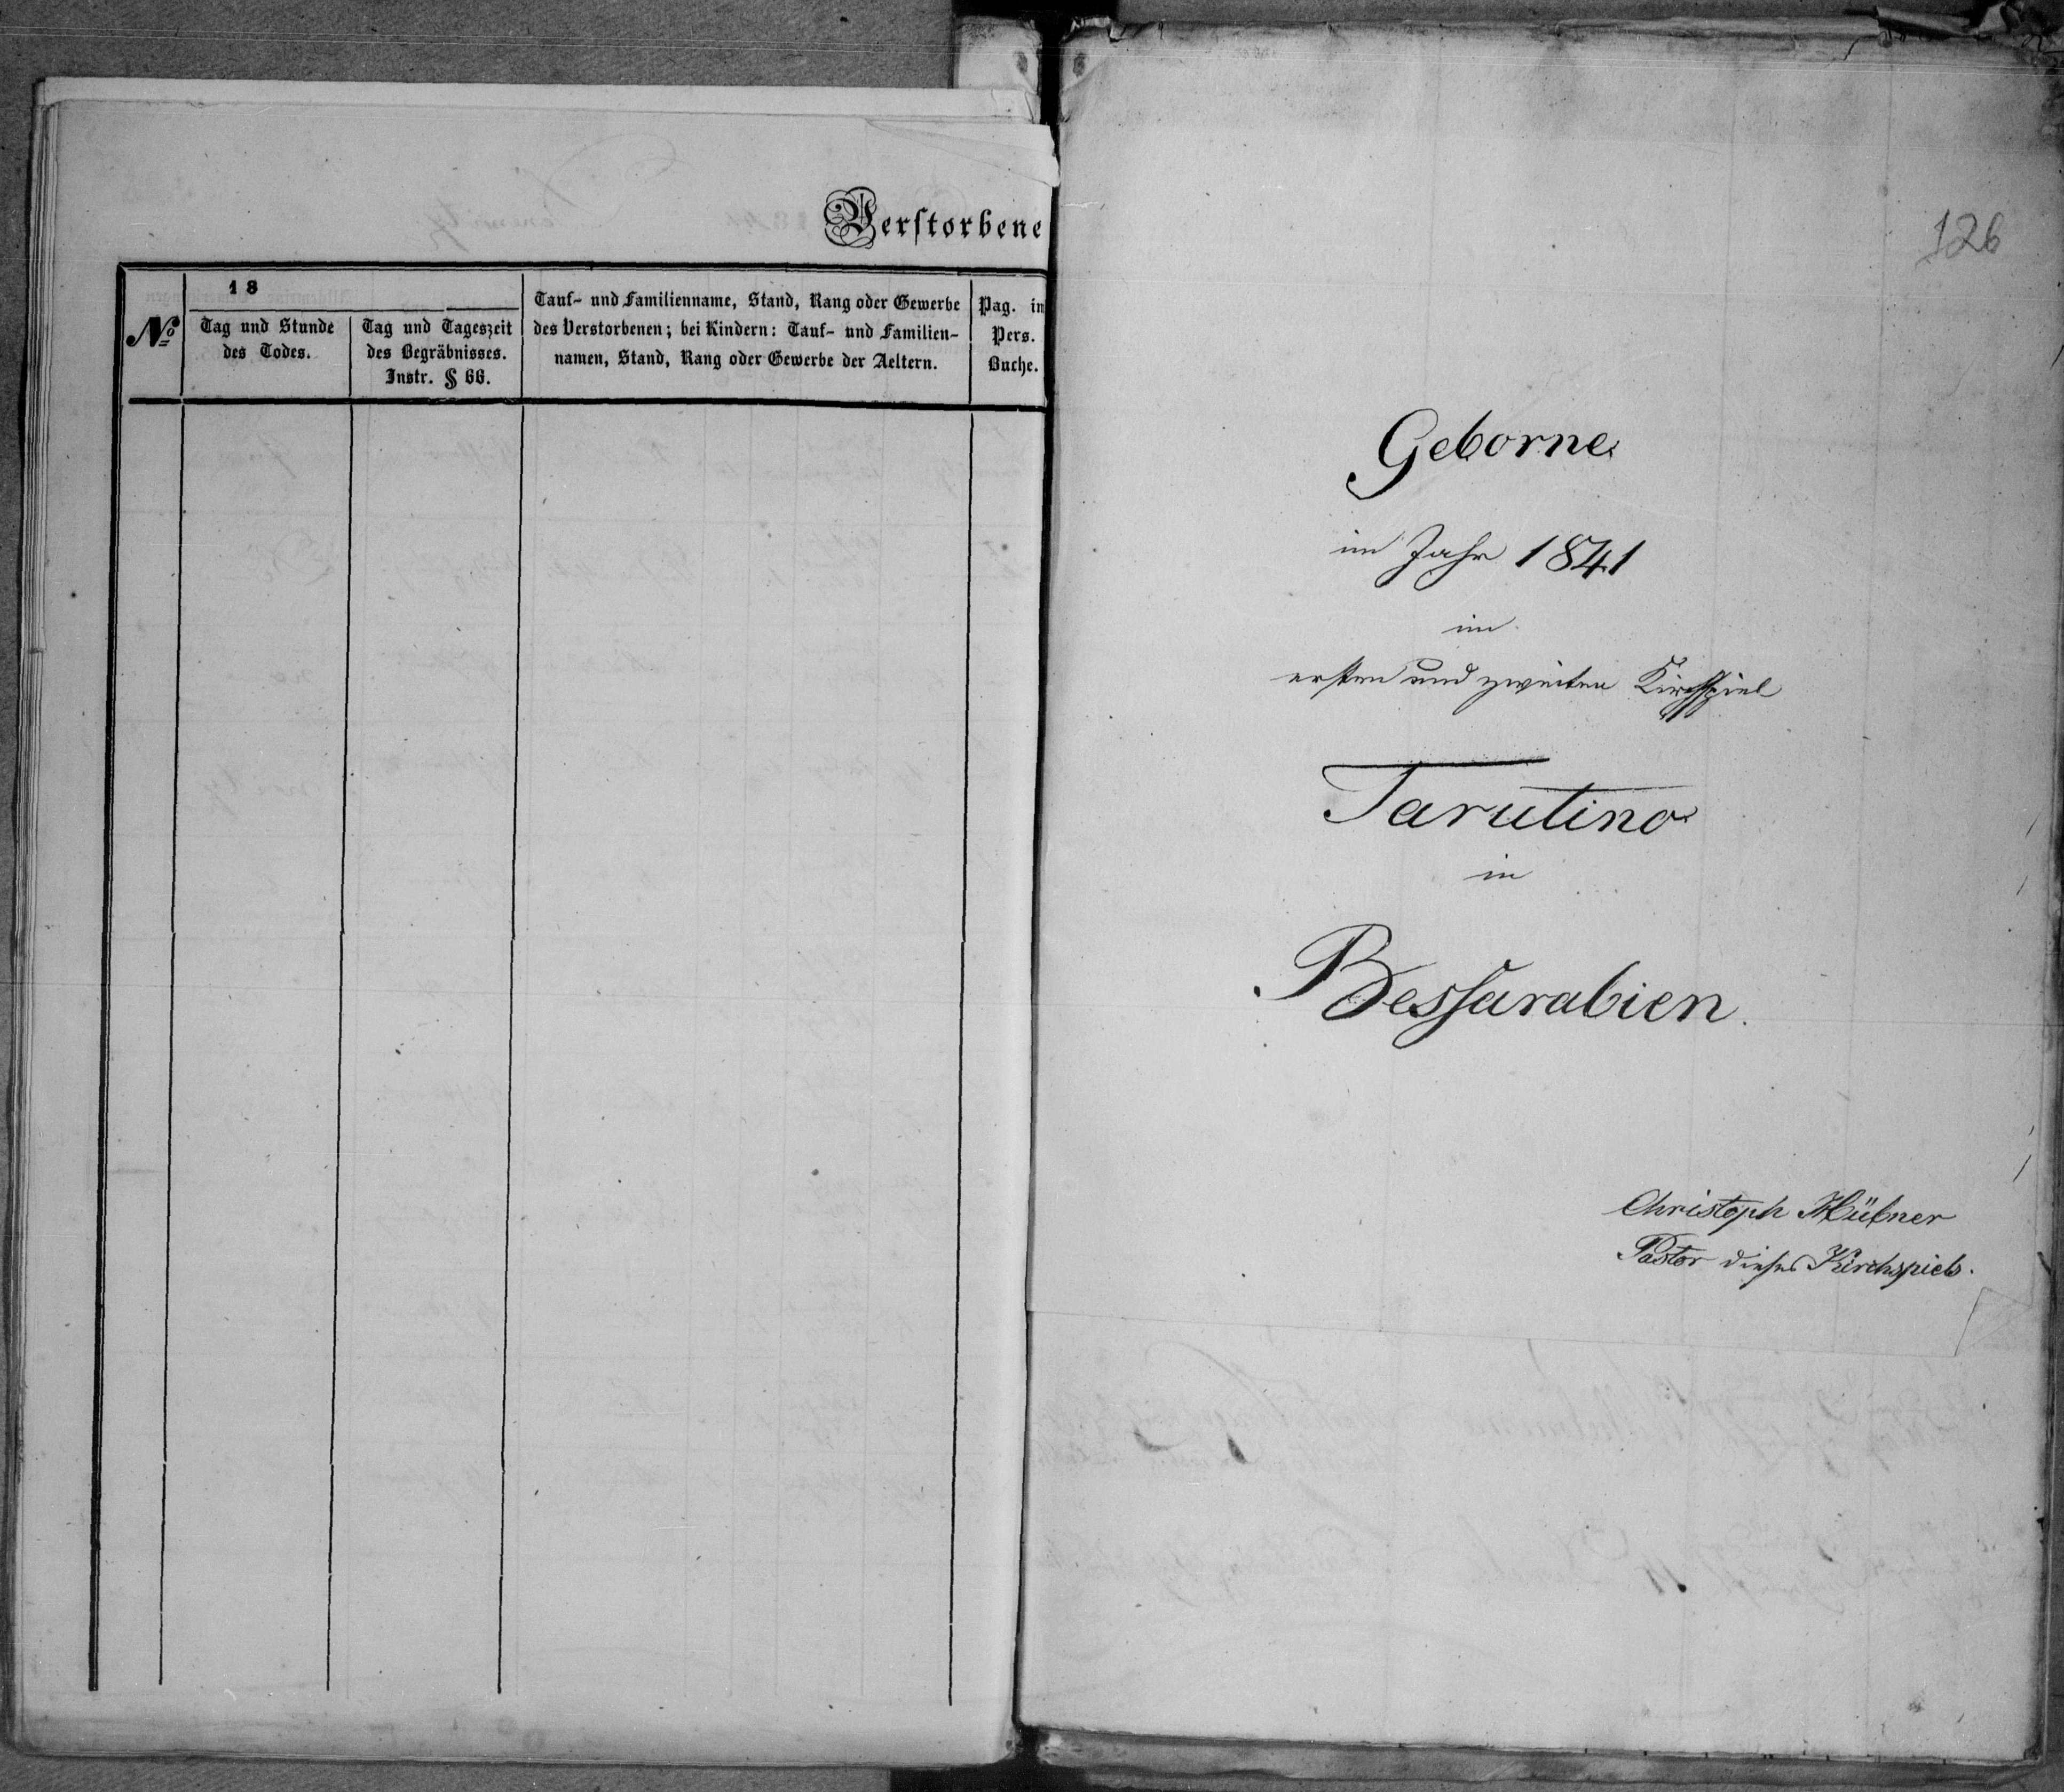 Verstorbene
№
18
Tag und Stunde
des Todes.
Tag und Tageszeit
des Begräbnisses.
Instr. § 66.
Tauf- und Familienname, Stand, Rang oder Gewerbe
des Verstorbenen; bei Kindern: Tauf- und Familien-
namen, Stand, Rang oder Gewerbe der Aeltern.
Pag. in
Pers.
Buche.
126
Geborne
im Jahr 1841
im
ersten und zweiten Kirchspiel
Tarutino
in
Bessarabien.
Christoph Hübner
Pastor dieses Kirchspiels.